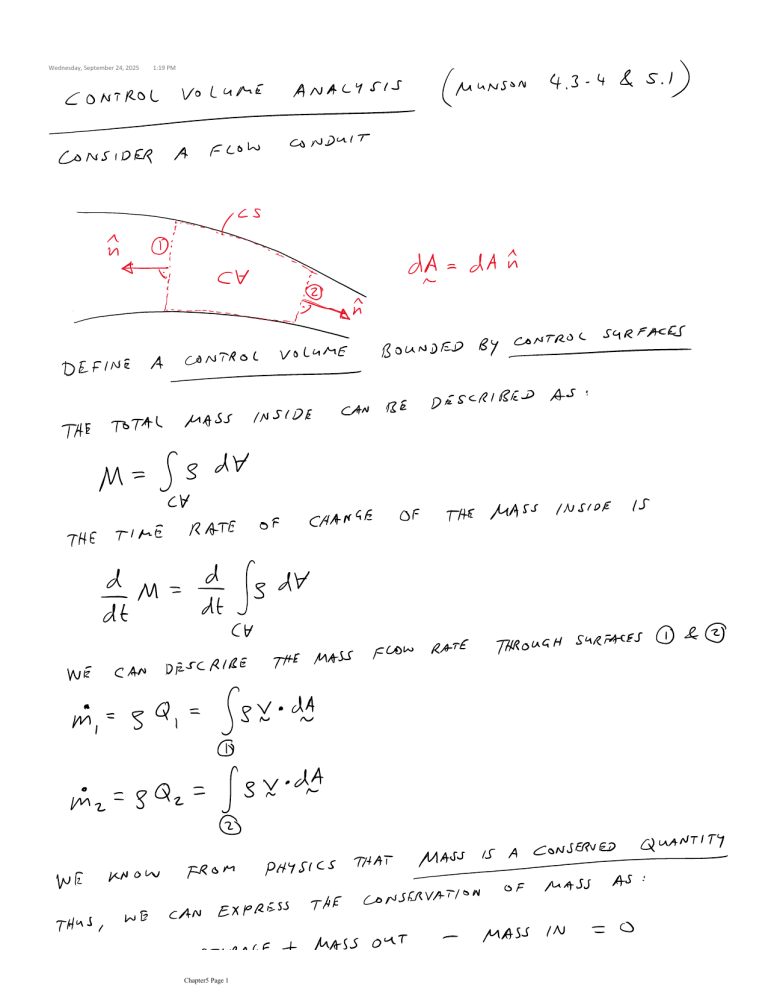 Wednesday, September 24, 2025 1:19 PM
CONTROL VOLUME ANALYSIS (MUNSON 4.3-4 & 5.1)
CONSIDER A FLOW CONDUIT
CS
n̂ ① C∀ ② n̂
dA̰ = dA n̂
DEFINE A CONTROL VOLUME BOUNDED BY CONTROL SURFACES
THE TOTAL MASS INSIDE CAN BE DESCRIBED AS:
M = ∫_C∀ ρ d∀
THE TIME RATE OF CHANGE OF THE MASS INSIDE IS
d/dt M = d/dt ∫_C∀ ρ d∀
WE CAN DESCRIBE THE MASS FLOW RATE THROUGH SURFACES ① & ②
ṁ₁ = ρ Q₁ = ∫_① ρ V̰ · dA̰
ṁ₂ = ρ Q₂ = ∫_② ρ V̰ · dA̰
WE KNOW FROM PHYSICS THAT MASS IS A CONSERVED QUANTITY
THUS, WE CAN EXPRESS THE CONSERVATION OF MASS AS:
+ MASS OUT - MASS IN = 0
Chapter5 Page 1